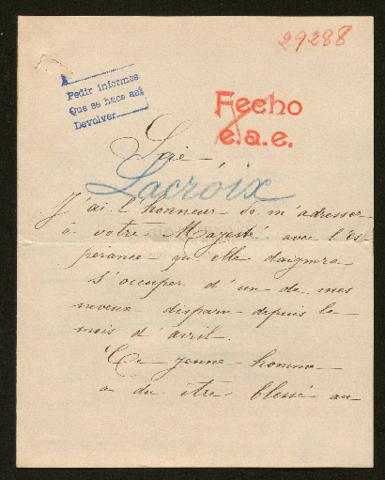 29288
Pedir informes
Que se hace así
Devolver
Fecho
e.a.e.
Sire,
Lacroix
J'ai l'honneur de m'adresser
à votre Majesté avec l'es
pérance qu'elle daignera
s'occuper d'un de mes
neveux disparu depuis le
mois d'avril.
Ce jeune homme
a du être blessé au